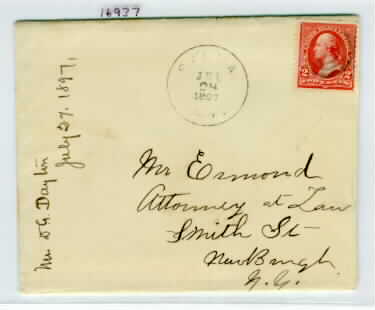 16937
JUL
24
1897
2 2
Mr Esmond
Attorney at Law
Smith St
NewBurgh
N.Y.
D G. Dayton
July 27. 1897,